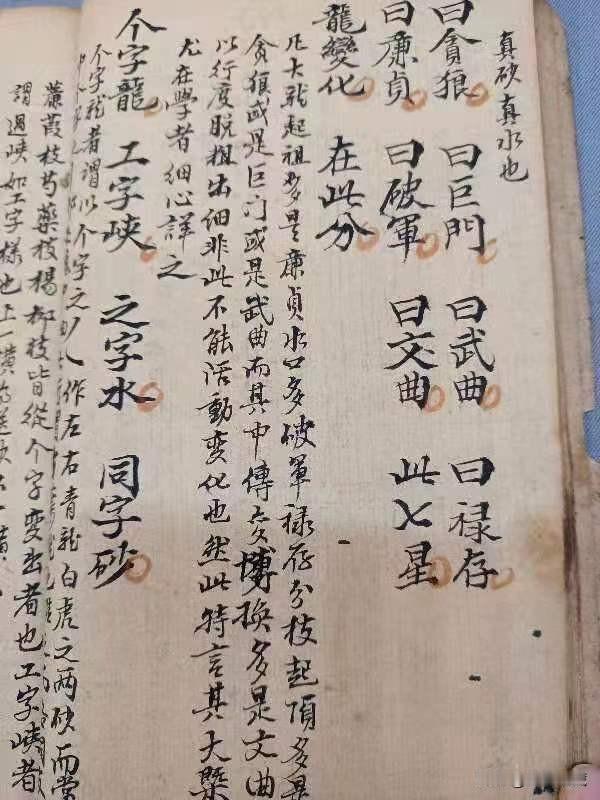 真砂真水也
曰貪狼 曰巨門 曰武曲 曰禄存
曰廉貞 曰破軍 曰文曲 此七星
龍變化 在此分
凡大龍起祖多是廉貞水口多破軍禄存分枝起頂多是
貪狼或是巨门或是武曲而其中傳变博換多是文曲
以行度脱粗出细非此不能活動变化也然此特言其大槩
尤在學者细心詳之
个字龍 工字峡 之字水 同字砂
个字龍者謂以个字之丿乀作左右青龍白虎之两砂而
蘼葭枝芍藥枝楊柳枝皆從个字变出者也工字峡者
謂過峡如工字樣也上一横為